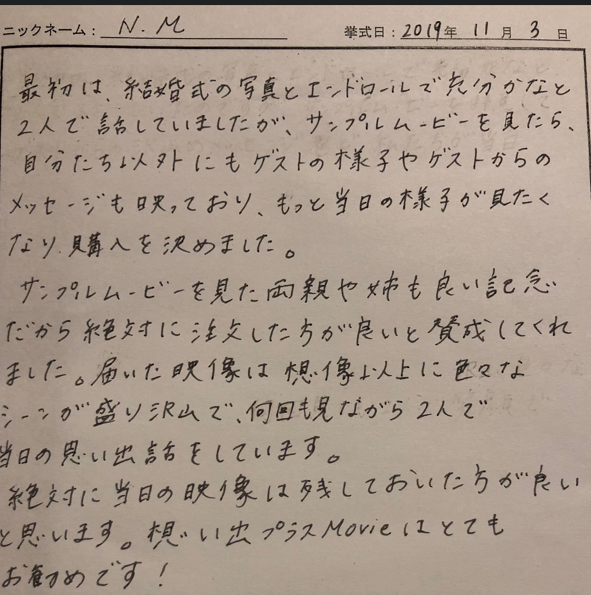 ニックネーム： N.M 挙式日：2019年 11月 3日
最初は、結婚式の写真とエンドロールで充分かなと
2人で話していましたが、サンプルムービーを見たら、
自分たち以外にもゲストの様子やゲストからの
メッセージも映っており、もっと当日の様子が見たく
なり、購入を決めました。
サンプルムービーを見た両親や姉も良い記念
だから絶対に注文した方が良いと賛成してくれ
ました。届いた映像は想像以上に色々な
シーンが盛り沢山で、何回も見ながら2人で
当日の思い出話をしています。
絶対に当日の映像は残しておいた方が良い
と思います。想い出プラスMovieはとても
お勧めです！